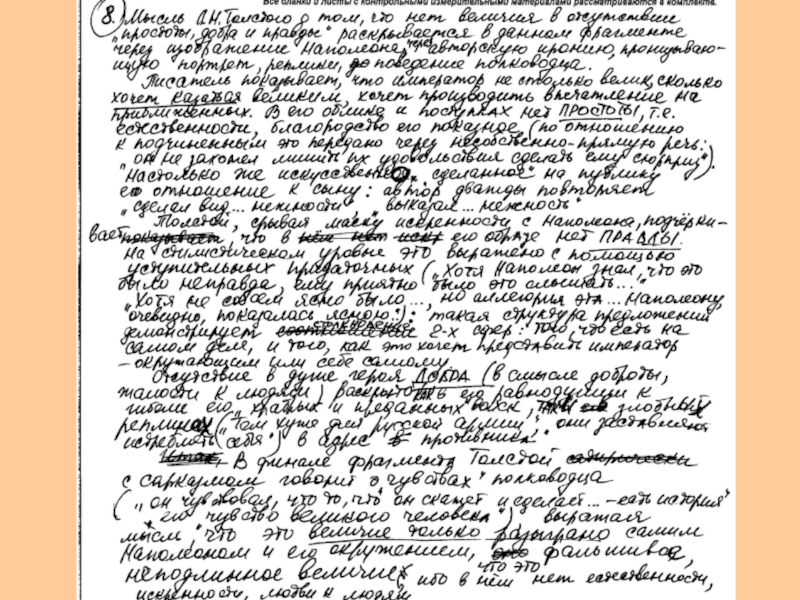 Все бланки и листы с контрольными измерительными материалами рассматриваются в комплекте.
8. Мысль Л.Н. Толстого о том, что нет величия в отсутствии
„простоты, добра и правды" раскрывается в данном фрагменте
через изображение Наполеона, через авторскую иронию, пронизываю-
щую портрет, реплики, поведение полководца.
Писатель показывает, что император не столько велик, сколько
хочет казаться великим, хочет производить впечатление на
приближенных. В его облике и поступках нет ПРОСТОТЫ, т.е.
естественности, благородство его показное (по отношению
к подчиненным это передано через несобственно-прямую речь:
„он не захотел лишить их удовольствия сделать ему сюрприз").
Настолько же искусственно, „сделанное" на публику
его отношение к сыну: автор дважды повторяет
„сделал вид... нежности" выказал... нежность"
Толстой, срывая маску искренности с Наполеона, подчёрки-
вает, что в его образе нет ПРАВДЫ.
На стилистическом уровне это выражено с помощью
уступительных придаточных („Хотя Наполеон знал, что это
было неправда, ему приятно было это слышать..."
„Хотя не совсем ясно было..., но аллегория эта... Наполеону,
очевидно, показалась ясною..): такая структура предложений
демонстрирует 2-х сфер: того, что есть на
самом деле, и того, как это хочет представить император
– окружающим или себе самому.
Отсутствие в душе героя ДОБРА (в смысле доброты,
жалости к людям) раскрыто в его равнодушии к
гибели его „храбрых и преданных" войск, злобных
репликах („Тем хуже для русской армии", они заставляют
истреблять себя") в адрес противника.
В финале фрагмента Толстой
с сарказмом говорит о „чувствах" полководца
(„он чувствовал, что то, что он скажет и сделает... – есть история"
„его чувство великого человека"), выражая
мысль, что это величие только разыграно самим
Наполеоном и его окружением, что это фальшивое,
неподлинное величие, ибо в нём нет естественности,
искренности, любви к людям